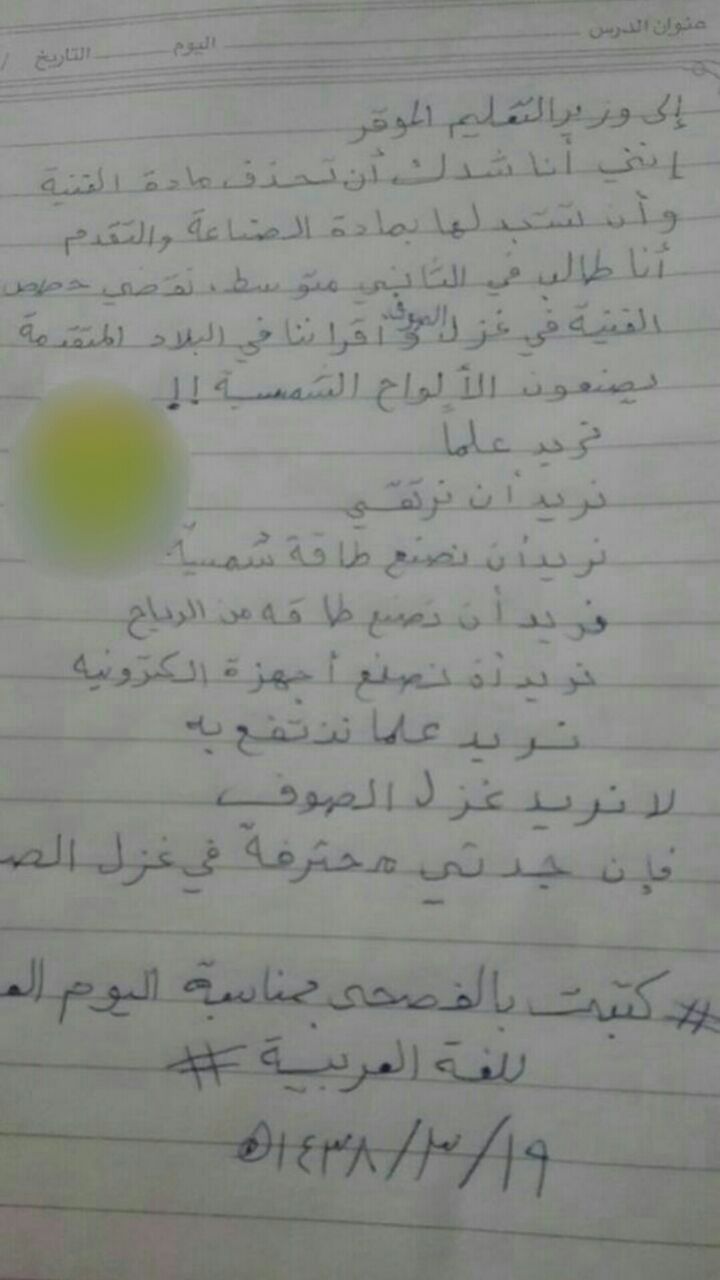 عنوان الدرس اليوم التاريخ /
إلى وزير التعليم الموقر
إنني أناشدك أن تحذف مادة الفنية
وأن تستبدلها بمادة الصناعة والتقدم
أنا طالب في الثاني متوسط، نقضي حصص
الفنية في غزل الصوف و أقراننا في البلاد المتقدمة
يصنعون الألواح الشمسية !!
نريد علماً
نريد أن نرتقي
نريد أن نصنع طاقة شمسية
نريد أن نصنع طاقه من الرياح
نريد أن نصنع أجهزة الكترونيه
نريد علما ننتفع به
لا نريد غزل الصوف
فإن جدتي محترفة في غزل الص
# كتبت بالفصحى بمناسبة اليوم الع
للغة العربية #
١٩/٣/١٤٣٨هـ